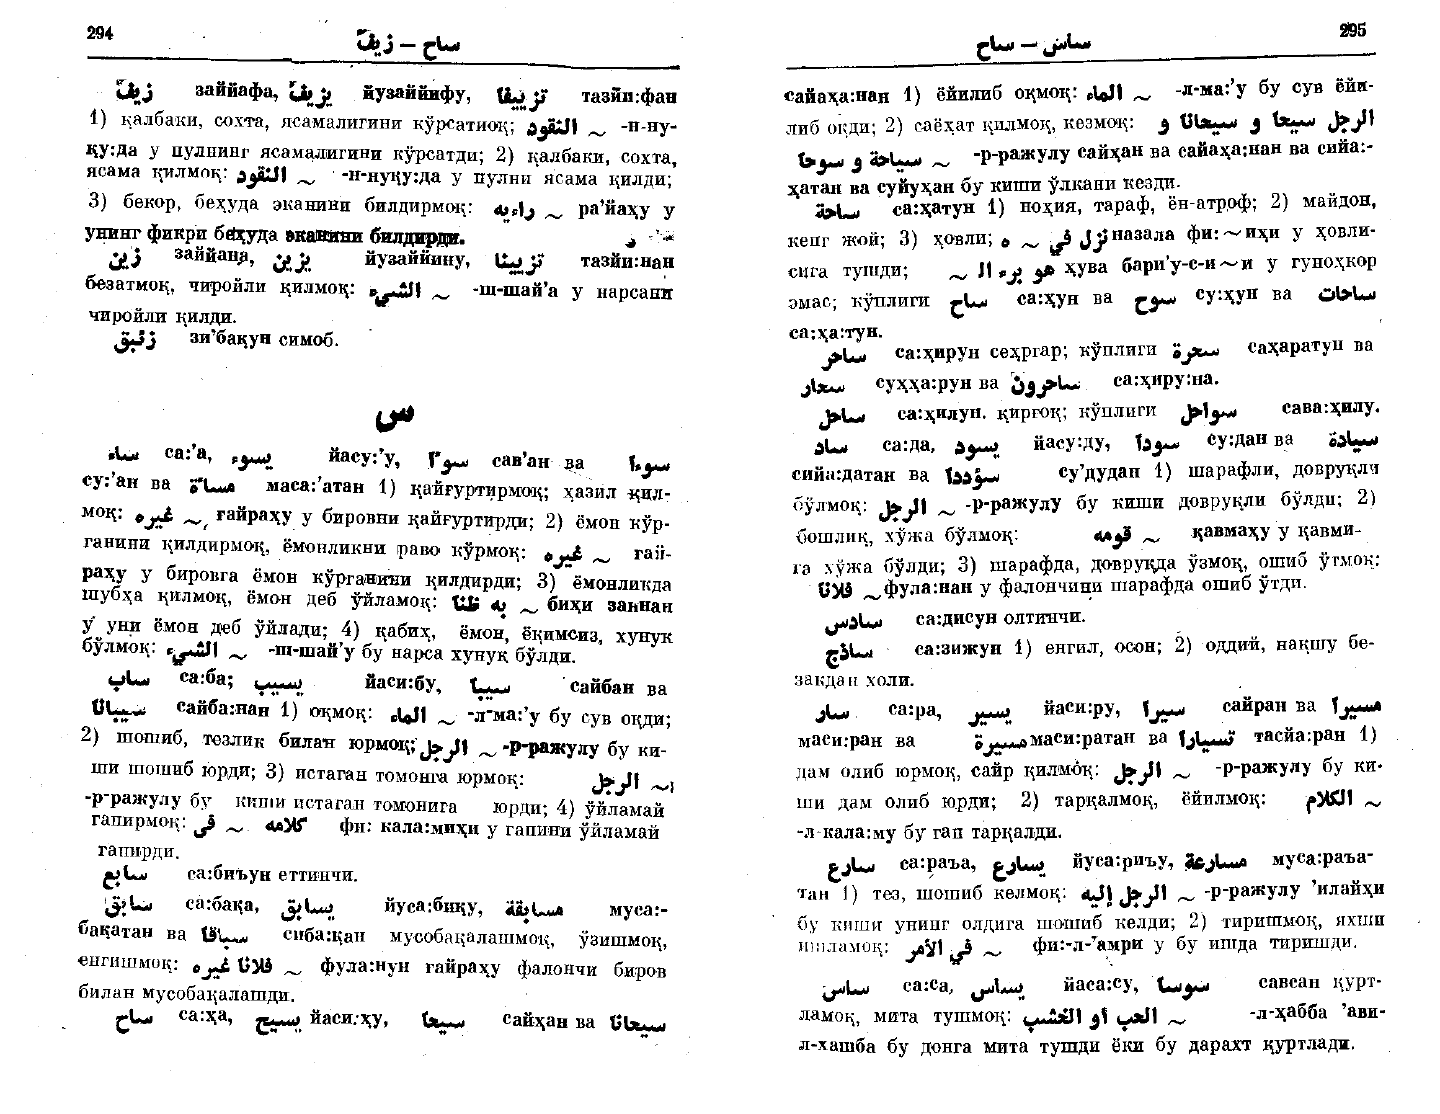 294
زيفّ — ساح
زيفّ заййафа, يزيفّ йузаййифу, تزييفا тазйи:фан
1) қалбаки, сохта, ясамалигини кўрсатмоқ; ~ النقود -н-ну-
қу:да у пулнинг ясамалигини кўрсатди; 2) қалбаки, сохта,
ясама қилмоқ: ~ النقود -н-нуқу:да у пулни ясама қилди;
3) бекор, беҳуда эканини билдирмоқ: ~ رايه ра’йаҳу у
унинг фикри беҳуда эканини билдирди.
زين заййана, يزين йузаййину, تزيينا тазйи:нан
безатмоқ, чиройли қилмоқ: ~ الشيء -ш-шай’а у нарсани
чиройли қилди.
زئبق зи’бақун симоб.
س
ساء са:’а, يسوء йасу:’у, سوءا сав’ан ва سوءا
су:’ан ва مساءة маса:’атан 1) қайғуртирмоқ; ҳазил қил-
моқ: ~ غيره ғайраҳу у бировни қайғуртирди; 2) ёмон кўр-
ганини қилдирмоқ, ёмонликни раво кўрмоқ: ~ غيره ғай-
раҳу у бировга ёмон кўрганини қилдирди; 3) ёмонликда
шубҳа қилмоқ, ёмон деб ўйламоқ: ~ به ظنا биҳи заннан
у уни ёмон деб ўйлади; 4) қабиҳ, ёмон, ёқимсиз, хунук
бўлмоқ: ~ الشيء -ш-шай’у бу нарса хунук бўлди.
ساب са:ба; يسيب йаси:бу, سيبا сайбан ва
سيبانا сайба:нан 1) оқмоқ: ~ الماء -л-ма:’у бу сув оқди;
2) шошиб, тезлик билан юрмоқ; ~ الرجل -р-ражулу бу ки-
ши шошиб юрди; 3) истаган томонга юрмоқ: ~ الرجل
-р-ражулу бу киши истаган томонига юрди; 4) ўйламай
гапирмоқ: ~ في كلامه фи: кала:миҳи у гапини ўйламай
гапирди.
سابع са:биъун еттинчи.
سابق са:бақа, يسابق йуса:биқу, مسابقة муса:-
бақатан ва سباقا сиба:қан мусобақалашмоқ, ўзишмоқ,
енгишмоқ: ~ فلانا غيره фула:нун ғайраҳу фалончи биров
билан мусобақалашди.
ساح са:ҳа, يسيح йаси:ҳу, سيحا сайҳан ва سيحانا
295
ساح — ساس
сайаҳа:нан 1) ёйилиб оқмоқ: ~ الماء -л-ма:’у бу сув ёйи-
либ оқди; 2) саёҳат қилмоқ, кезмоқ: الرجل سيحا و سيحانا و
~ سياحة و سوحا -р-ражулу сайҳан ва сайаҳа:нан ва сийа:-
ҳатан ва суйуҳан бу киши ўлкани кезди.
ساحة са:ҳатун 1) ноҳия, тараф, ён-атроф; 2) майдон,
кенг жой; 3) ҳовли; نزل في ~ ه назала фи: ~ иҳи у ҳовли-
сига тушди; هو برء ال ~ ҳува бари’у-с-и ~ и у гуноҳкор
эмас; кўплиги ساح са:ҳун ва سوح су:ҳун ва ساحات
са:ҳа:тун.
ساحر са:ҳирун сеҳргар; кўплиги سحرة саҳаратун ва
سحار суҳҳа:рун ва ساحرون са:ҳиру:на.
ساحل са:ҳилун. қирғоқ; кўплиги سواحل сава:ҳилу.
ساد са:да, يسود йасу:ду, سودا су:дан ва سيادة
сийа:датан ва سؤددا су’дудан 1) шарафли, довруқли
бўлмоқ: ~ الرجل -р-ражулу бу киши довруқли бўлди; 2)
бошлиқ, хўжа бўлмоқ: ~ قومه қавмаҳу у қавми-
га хўжа бўлди; 3) шарафда, довруқда ўзмоқ, ошиб ўтмоқ:
~ فلانا фула:нан у фалончини шарафда ошиб ўтди.
سادس са:дисун олтинчи.
ساذج са:зижун 1) енгил, осон; 2) оддий, нақшу бе-
закдан холи.
سار са:ра, يسير йаси:ру, سيرا сайран ва مسيرا
маси:ран ва مسيرة маси:ратан ва تسيارا тасйа:ран 1)
дам олиб юрмоқ, сайр қилмоқ: ~ الرجل -р-ражулу бу ки-
ши дам олиб юрди; 2) тарқалмоқ, ёйилмоқ: ~ الكلام
-л-кала:му бу гап тарқалди.
سارع са:раъа, يسارع йуса:риъу, مسارعة муса:раъа-
тан 1) тез, шошиб келмоқ: ~ الرجل إليه -р-ражулу ’илайҳи
бу киши унинг олдига шошиб келди; 2) тиришмоқ, яхши
ишламоқ: ~ في الأمر фи:-л-’амри у бу ишда тиришди.
ساس са:са, يساس йаса:су, سوسا савсан қурт-
ламоқ, мита тушмоқ: ~ الحب أو الخشب -л-ҳабба ’ави-
л-хашба бу донга мита тушди ёки бу дарахт қуртлади.